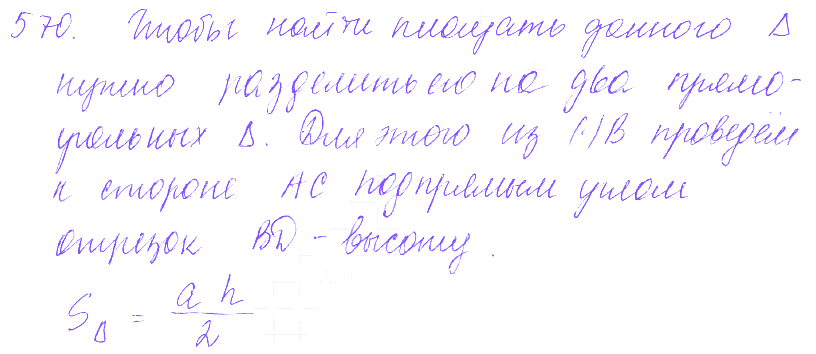 570. Чтобы найти площадь данного Δ
нужно разделить его на два прямо-
угольных Δ. Для этого из (·)B проведём
к стороне AC под прямым углом
отрезок BD - высоту.
S_Δ = a h / 2